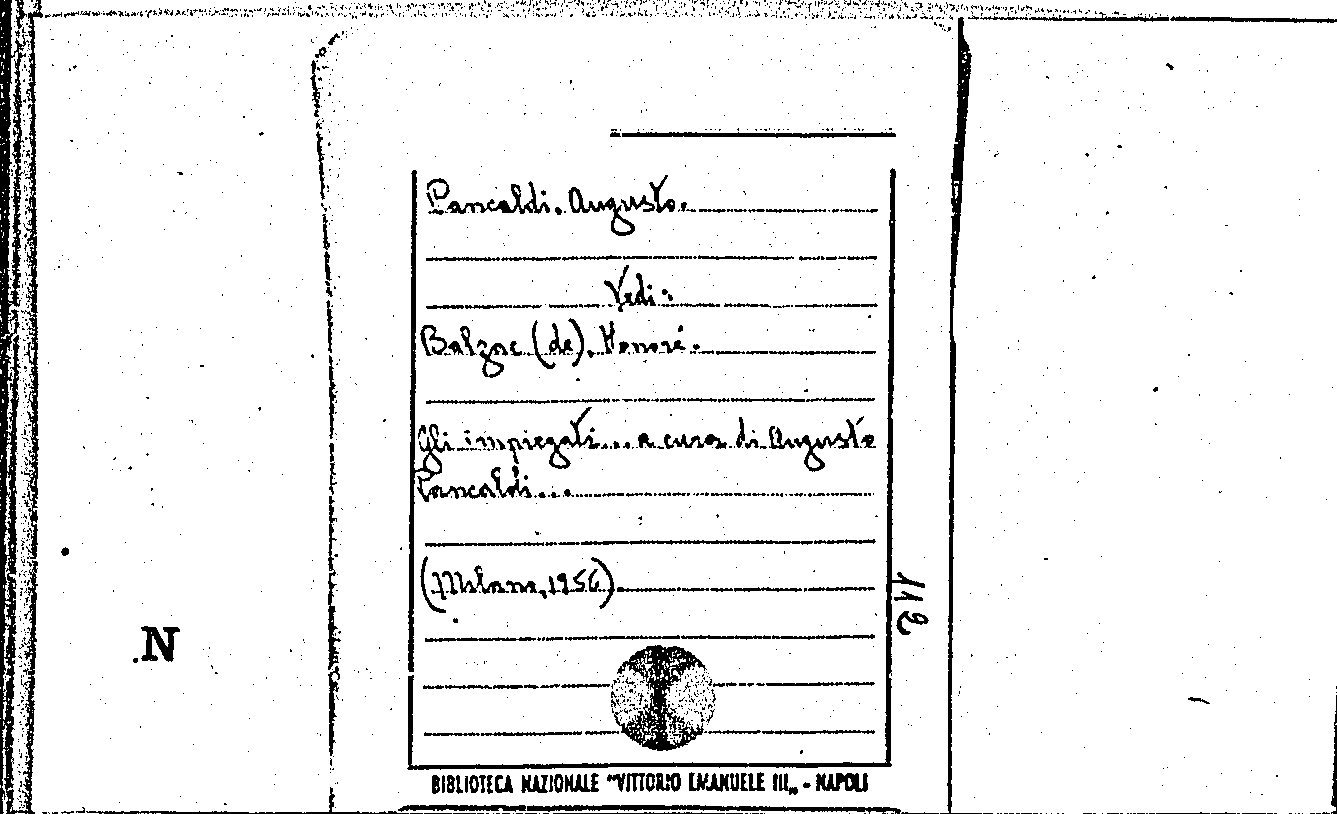 Pancaldi. Augusto.
Vedi:
Balzac (de). Honoré.
Gli impiegati... a cura di Augusto
Pancaldi...
(Milano, 1956).
112
N
BIBLIOTECA NAZIONALE "VITTORIO EMANUELE III„ - NAPOLI